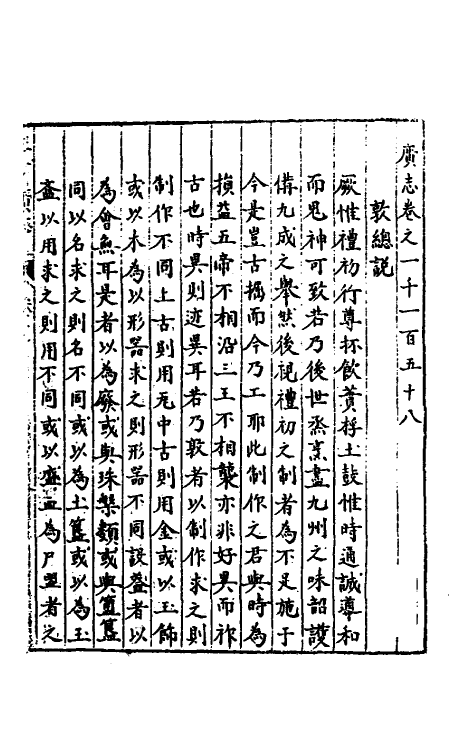 廣志卷之一千一百五十八
敦總說
厥惟禮初行尊抔飲蕢桴土鼓惟時通誠導和
而鬼神可致若乃後世烝烹盡九州之味韶護
備九成之舉然後視禮初之制者為不足施于
今是豈古搨而今乃工耶此制作之君與時為
損益五帝不相沿三王不相襲亦非好異而祚
古也時異則迹異耳若乃敦者以制作求之則
制作不同上古則用瓦中古則用金或以玉飾
或以木為以形器求之則形器不同設蓋者以
為會無耳是者以為廢或與珠槃類或與簠簋
同以名求之則名不同或以為土簋或以為玉
齍以用求之則用不同或以盛血為尸盟者之